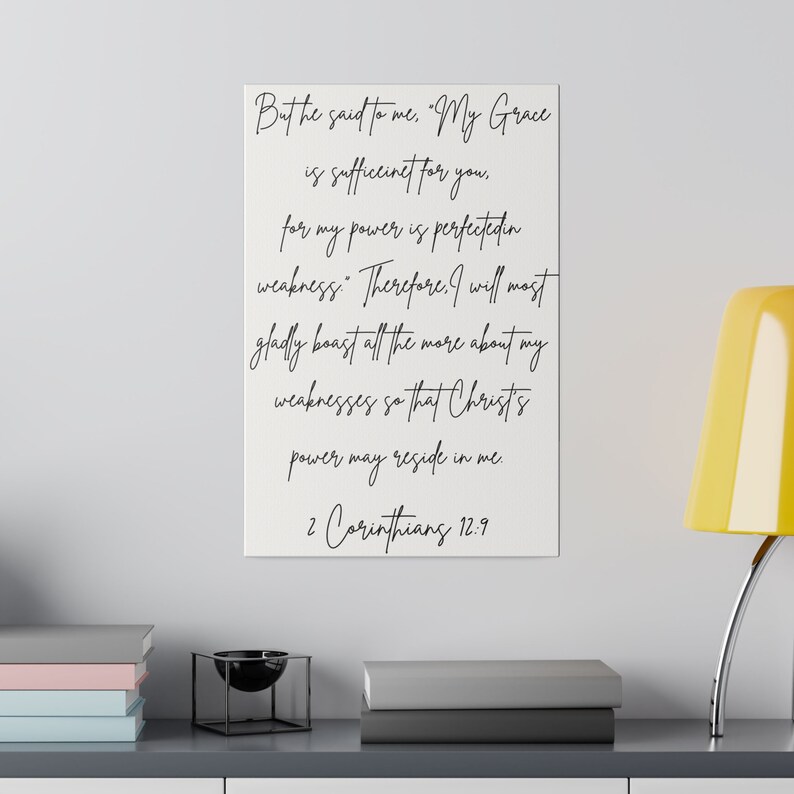 But he said to me, "My Grace
is sufficeinet for you,
for my power is perfectedin
weakness." Therefore, I will most
gladly boast all the more about my
weaknesses so that Christ's
power may reside in me.
2 Corinthians 12:9